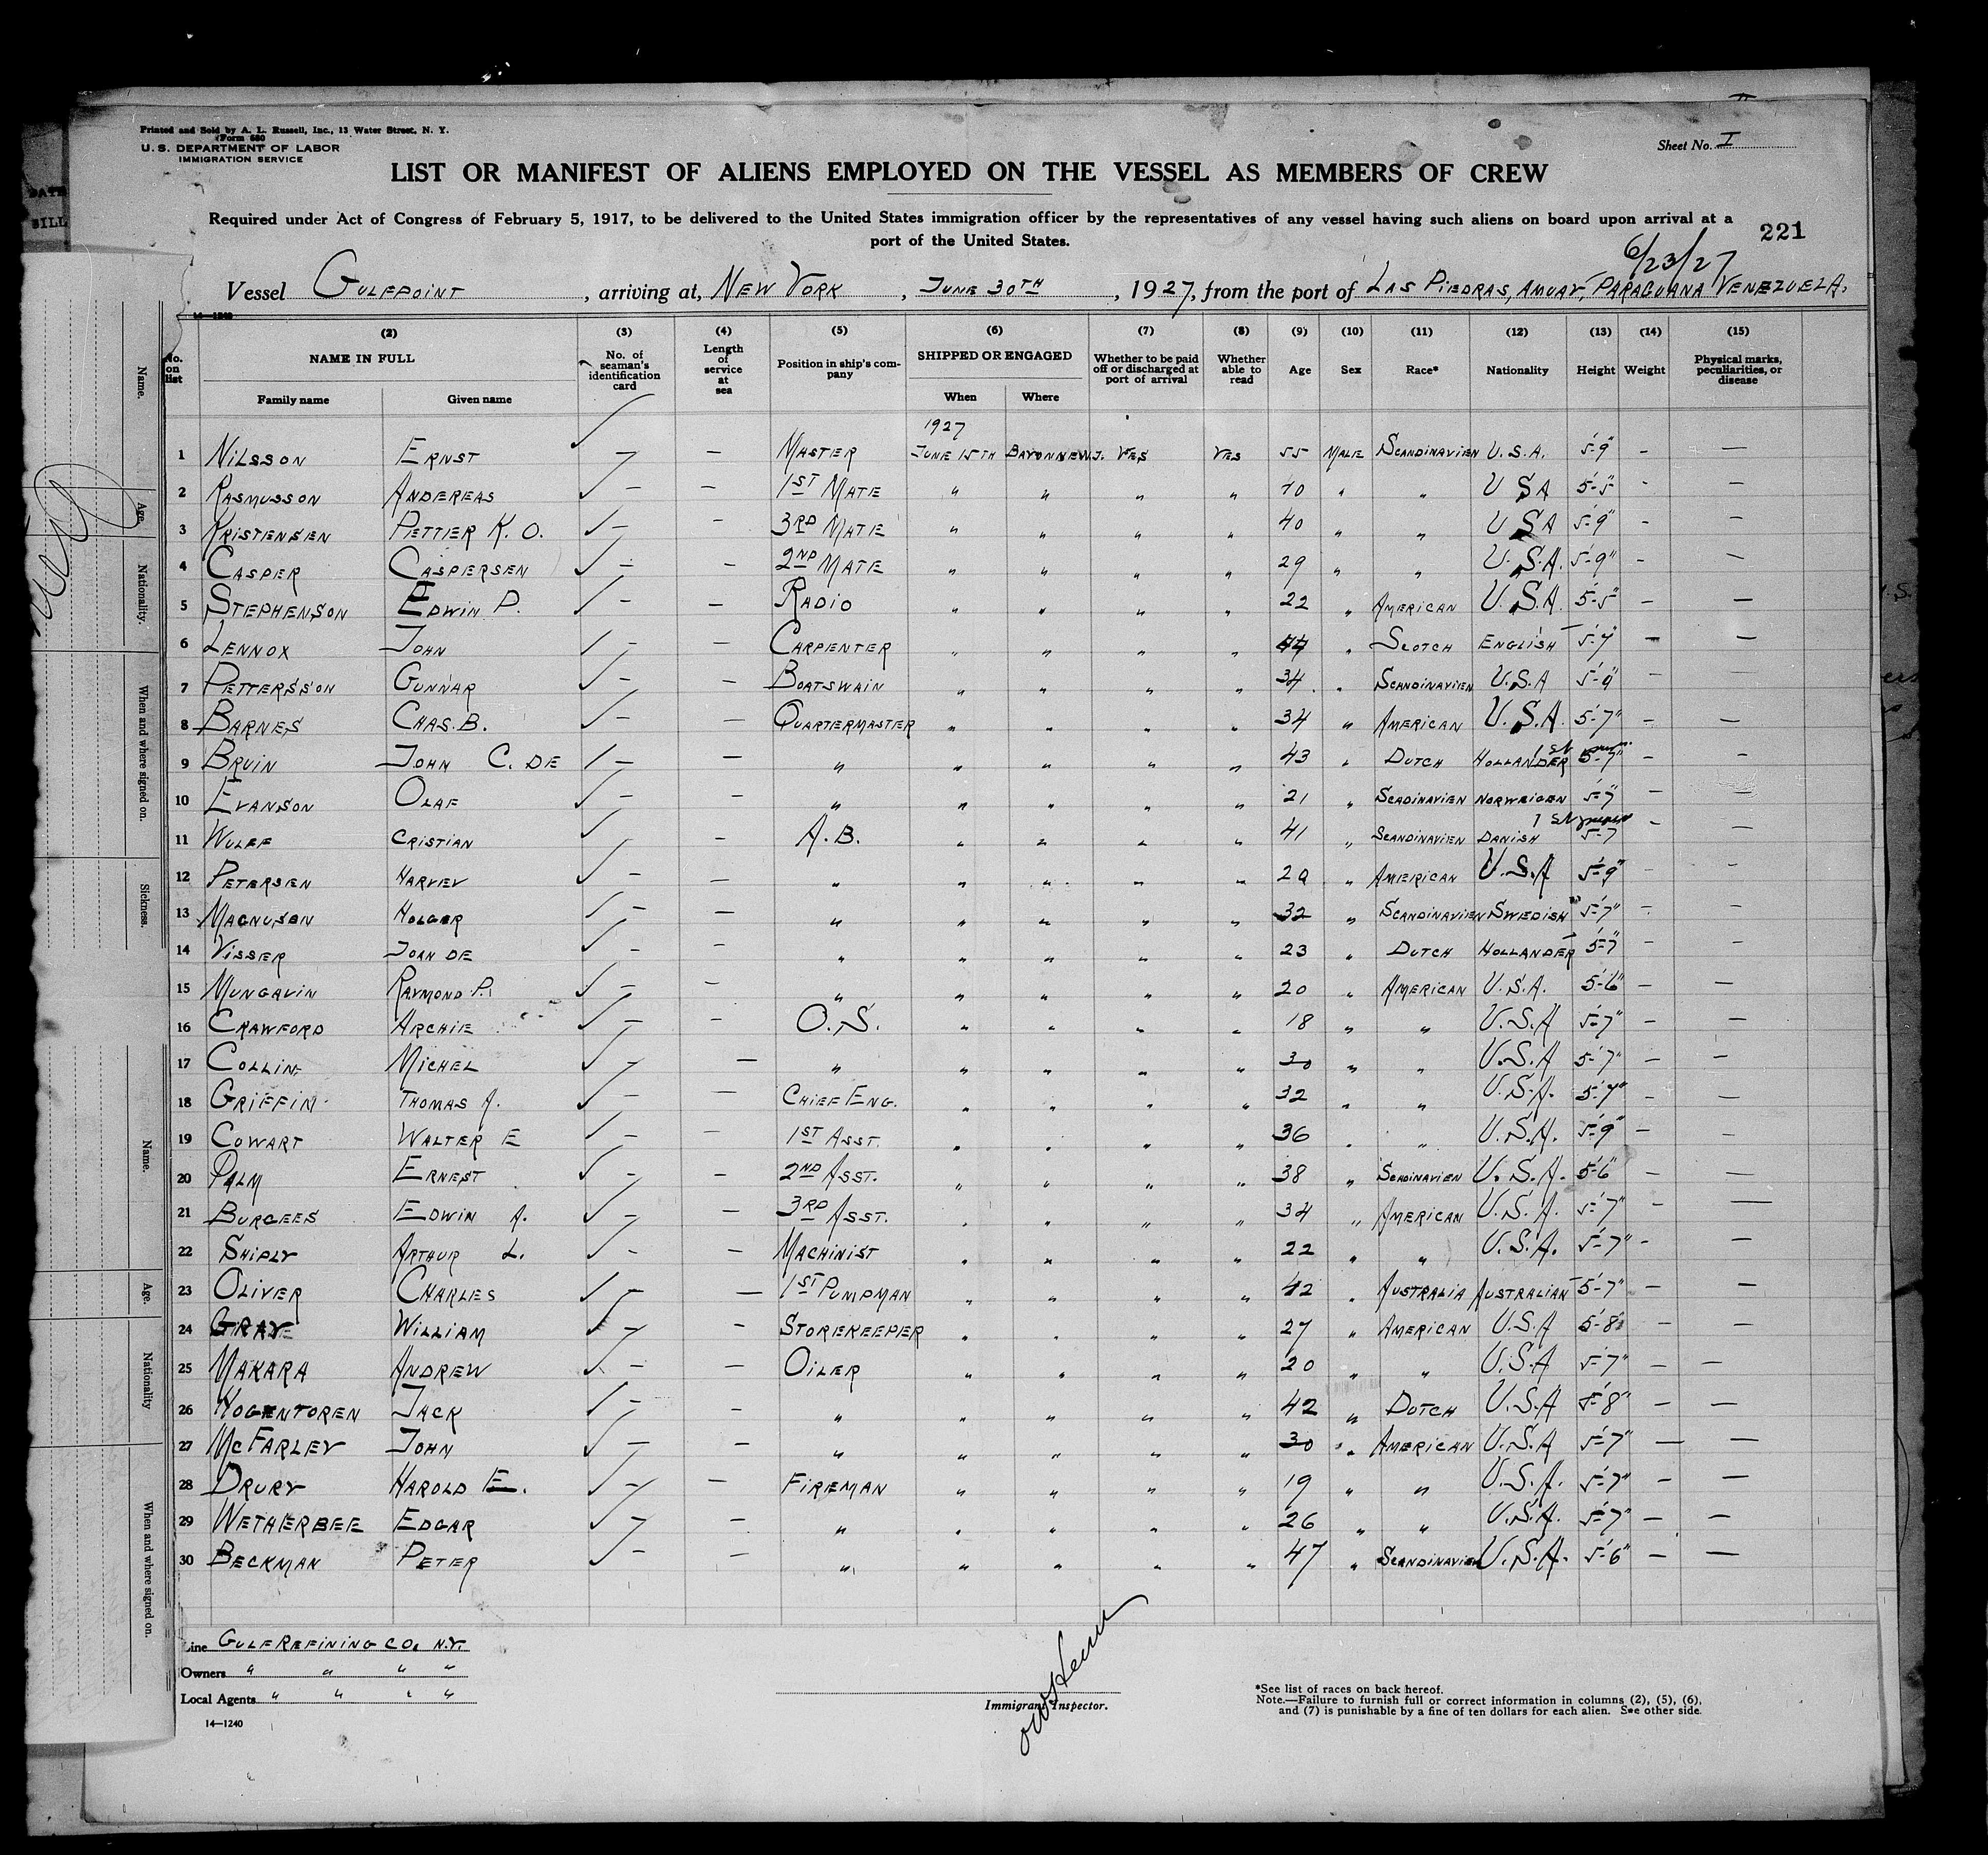 Printed and Sold by A. L. Russell, Inc., 13 Water Street, N. Y.
Form 680
U. S. DEPARTMENT OF LABOR
IMMIGRATION SERVICE
Sheet No. I
LIST OR MANIFEST OF ALIENS EMPLOYED ON THE VESSEL AS MEMBERS OF CREW
Required under Act of Congress of February 5, 1917, to be delivered to the United States immigration officer by the representatives of any vessel having such aliens on board upon arrival at a
port of the United States.
221
6/23/27
Vessel GULFPOINT, arriving at, NEW YORK, JUNE 30TH, 1927, from the port of LAS PIEDRAS, AMUAY, PARAGUANA VENEZUELA.
14-1240
(2) (3) (4) (5) (6) (7) (8) (9) (10) (11) (12) (13) (14) (15)
No. on list NAME IN FULL Family name Given name No. of seaman's identification card Length of service at sea Position in ship's company SHIPPED OR ENGAGED When Where Whether to be paid off or discharged at port of arrival Whether able to read Age Sex Race* Nationality Height Weight Physical marks, peculiarities, or disease
1927
1 NILSSON ERNST — — MASTER JUNE 15TH BAYONNE N.J. YES YES 55 MALE SCANDINAVIEN U.S.A. 5'-9" - —
2 RASMUSSON ANDEREAS — — 1ST MATE " " " " 70 " " U S A 5'-5" - —
3 KRISTENSEN PETTER K. O. — - 3RD MATE " " " " 40 " " U S A 5'-9" - —
4 CASPER CASPERSEN — - 2ND MATE " " " " 29 " " U.S.A. 5'-9" - —
5 STEPHENSON EDWIN P. — — RADIO " " " " 22 " AMERICAN U.S.A. 5'-5" — —
6 LENNOX JOHN — — CARPENTER " " " " 44 " SCOTCH ENGLISH 5'-7" — —
7 PETTERSSON GUNNAR — — BOATSWAIN " " " " 34 " SCANDINAVIEN U.S.A 5'-9" — —
8 BARNES CHAS. B. — — QUARTERMASTER " " " " 34 " AMERICAN U.S.A. 5'-7" — —
9 BRUIN JOHN C. DE — — " " " " " 43 " DUTCH HOLLANDER 5'-7" — —
10 EVANSON OLAF — — " " " " " 21 " SCADINAVIEN NORWEIGEN 5'-7" — —
11 WULFF CRISTIAN - A.B. " " " " 41 " SCANDINAVIEN DANISH 5'-7 - —
12 PETERSEN HARVEY — — " " " " " 29 " AMERICAN U.S.A 5'-9" - —
13 MAGNUSON HOLGER — — " " " " " 32 " SCANDINAVIEN SWEDISH 5'-7" - —
14 VISSER JOAN DE — - " " " " " 23 " DUTCH HOLLANDER 5'-7" — —
15 MUNGAVIN RAYMOND P. — — " " " " " 20 " AMERICAN U.S.A. 5'-6" — —
16 CRAWFORD ARCHIE — - O.S. " " " " 18 " " U.S.A 5'-7" — —
17 COLLINS MICHEL — — " " " " " 30 " " U.S.A 5'-7" — —
18 GRIFFIN THOMAS A. — — CHIEF ENG. " " " " 32 " " U.S.A. 5'-7" — —
19 COWART WALTER E — — 1ST ASST. " " " " 36 " " U.S.A. 5'-9" — —
20 PALM ERNEST — — 2ND ASST. " " " " 38 " SCADINAVIEN U.S.A. 5'-6" — —
21 BURGEES EDWIN A. — — 3RD ASST. " " " " 34 " AMERICAN U.S.A. 5'-7" - —
22 SHIPLY ARTHUR L. - — MACHINIST " " " " 22 " " U.S.A. 5'-7" - —
23 OLIVER CHARLES — — 1ST PUMPMAN " " " " 42 " AUSTRALIA AUSTRALIAN 5'-7" — —
24 GRAY WILLIAM — - STOREKEEPER " " " " 27 " AMERICAN U.S.A 5'-8" — —
25 MAKARA ANDREW — — OILER " " " " 20 " " U.S.A 5'-7" — —
26 HOGENTOREN JACK — — " " " " " 42 " DUTCH U.S.A 5'-8" — —
27 MCFARLEY JOHN — — " " " " " 30 " AMERICAN U.S.A 5'-7" — —
28 DRURY HAROLD E. — — FIREMAN " " " " 19 " " U.S.A. 5'-7" - —
29 WETHERBEE EDGAR — — " " " " " 26 " " U.S.A. 5'-7" — —
30 BECKMAN PETER — — " " " " " 47 " SCANDINAVIEN U.S.A. 5'-6" — —
Line GULF REFINING CO. N.Y.
Owners " " " "
Local Agents " " " "
14—1240
Immigrant Inspector.
*See list of races on back hereof.
Note.—Failure to furnish full or correct information in columns (2), (5), (6),
and (7) is punishable by a fine of ten dollars for each alien. See other side.
Name.
Age.
Nationality.
When and where signed on.
Sickness.
Name.
Age.
Nationality
When and where signed on.
DATE
BILL